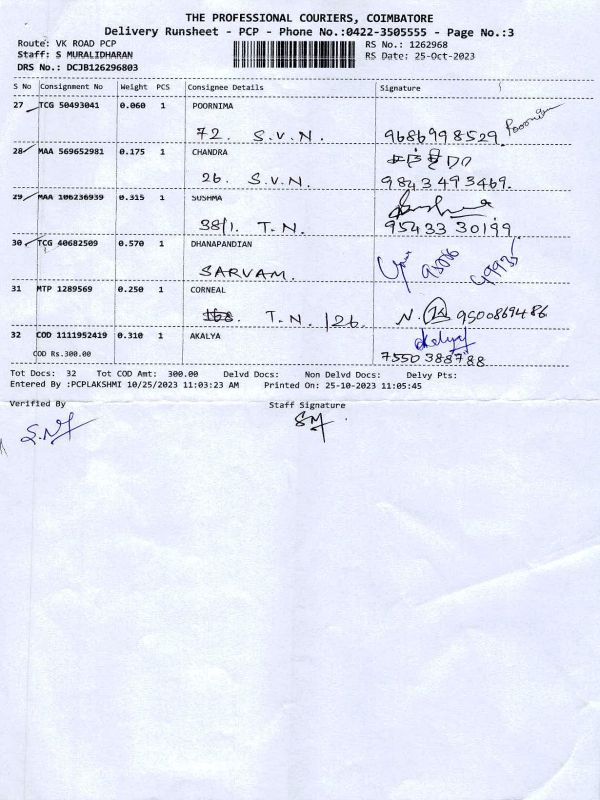 THE PROFESSIONAL COURIERS, COIMBATORE
Delivery Runsheet - PCP - Phone No.:0422-3505555 - Page No.:3
Route: VK ROAD PCP RS No.: 1262968
Staff: S MURALIDHARAN RS Date: 25-Oct-2023
DRS No.: DCJB126296803
S No Consignment No Weight PCS Consignee Details Signature
27 TCG 50493041 0.060 1 POORNIMA
72. S.V.N. 9686998529. Poornima
28 MAA 569652981 0.175 1 CHANDRA
26. S.V.N. 9843493469.
29 MAA 106236939 0.315 1 SUSHMA
38/1. T.N. 95433 30199
30 TCG 40682509 0.570 1 DHANAPANDIAN
SARVAM.
31 MTP 1289569 0.250 1 CORNEAL
T.N. /26. N. 9500869486
32 COD 1111952419 0.310 1 AKALYA Akalya
COD Rs.300.00 7550388788
Tot Docs: 32 Tot COD Amt: 300.00 Delvd Docs: Non Delvd Docs: Delvy Pts:
Entered By :PCPLAKSHMI 10/25/2023 11:03:23 AM Printed On: 25-10-2023 11:05:45
Verified By Staff Signature